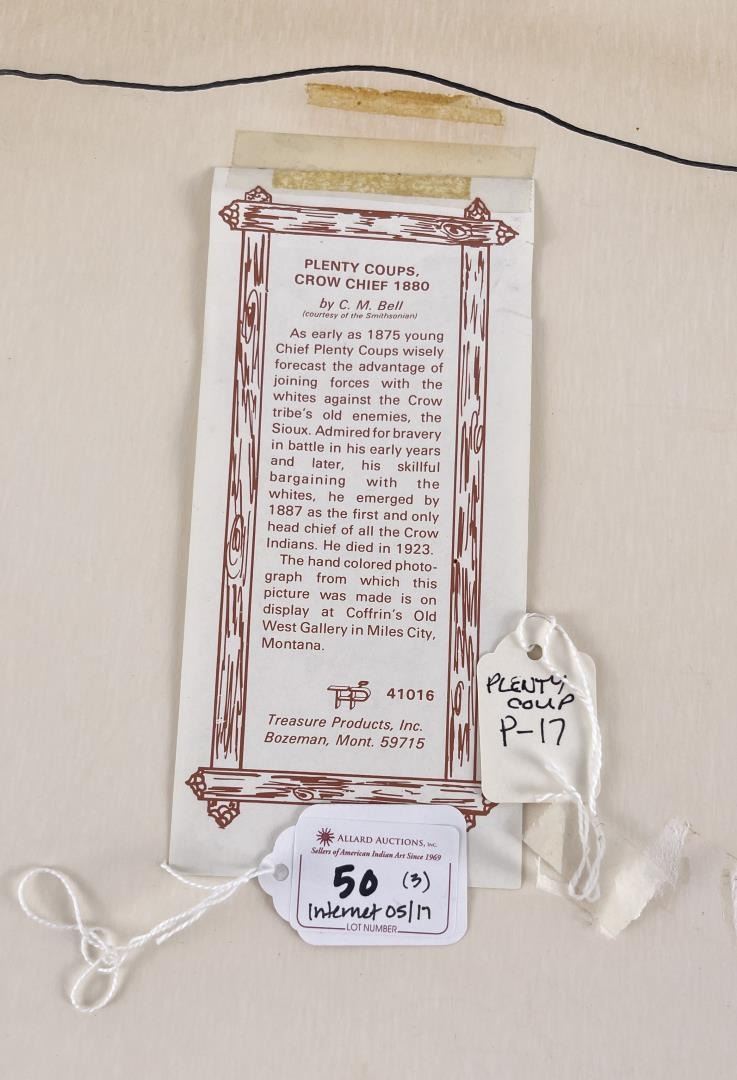 PLENTY COUPS,
CROW CHIEF 1880
by C. M. Bell
(courtesy of the Smithsonian)
As early as 1875 young
Chief Plenty Coups wisely
forecast the advantage of
joining forces with the
whites against the Crow
tribe's old enemies, the
Sioux. Admired for bravery
in battle in his early years
and later, his skillful
bargaining with the
whites, he emerged by
1887 as the first and only
head chief of all the Crow
Indians. He died in 1923.
The hand colored photo-
graph from which this
picture was made is on
display at Coffrin's Old
West Gallery in Miles City,
Montana.
TP 41016
Treasure Products, Inc.
Bozeman, Mont. 59715
PLENTY
COUP
P-17
ALLARD AUCTIONS, INC.
Sellers of American Indian Art Since 1969
50 (3)
Internet 05/17
LOT NUMBER